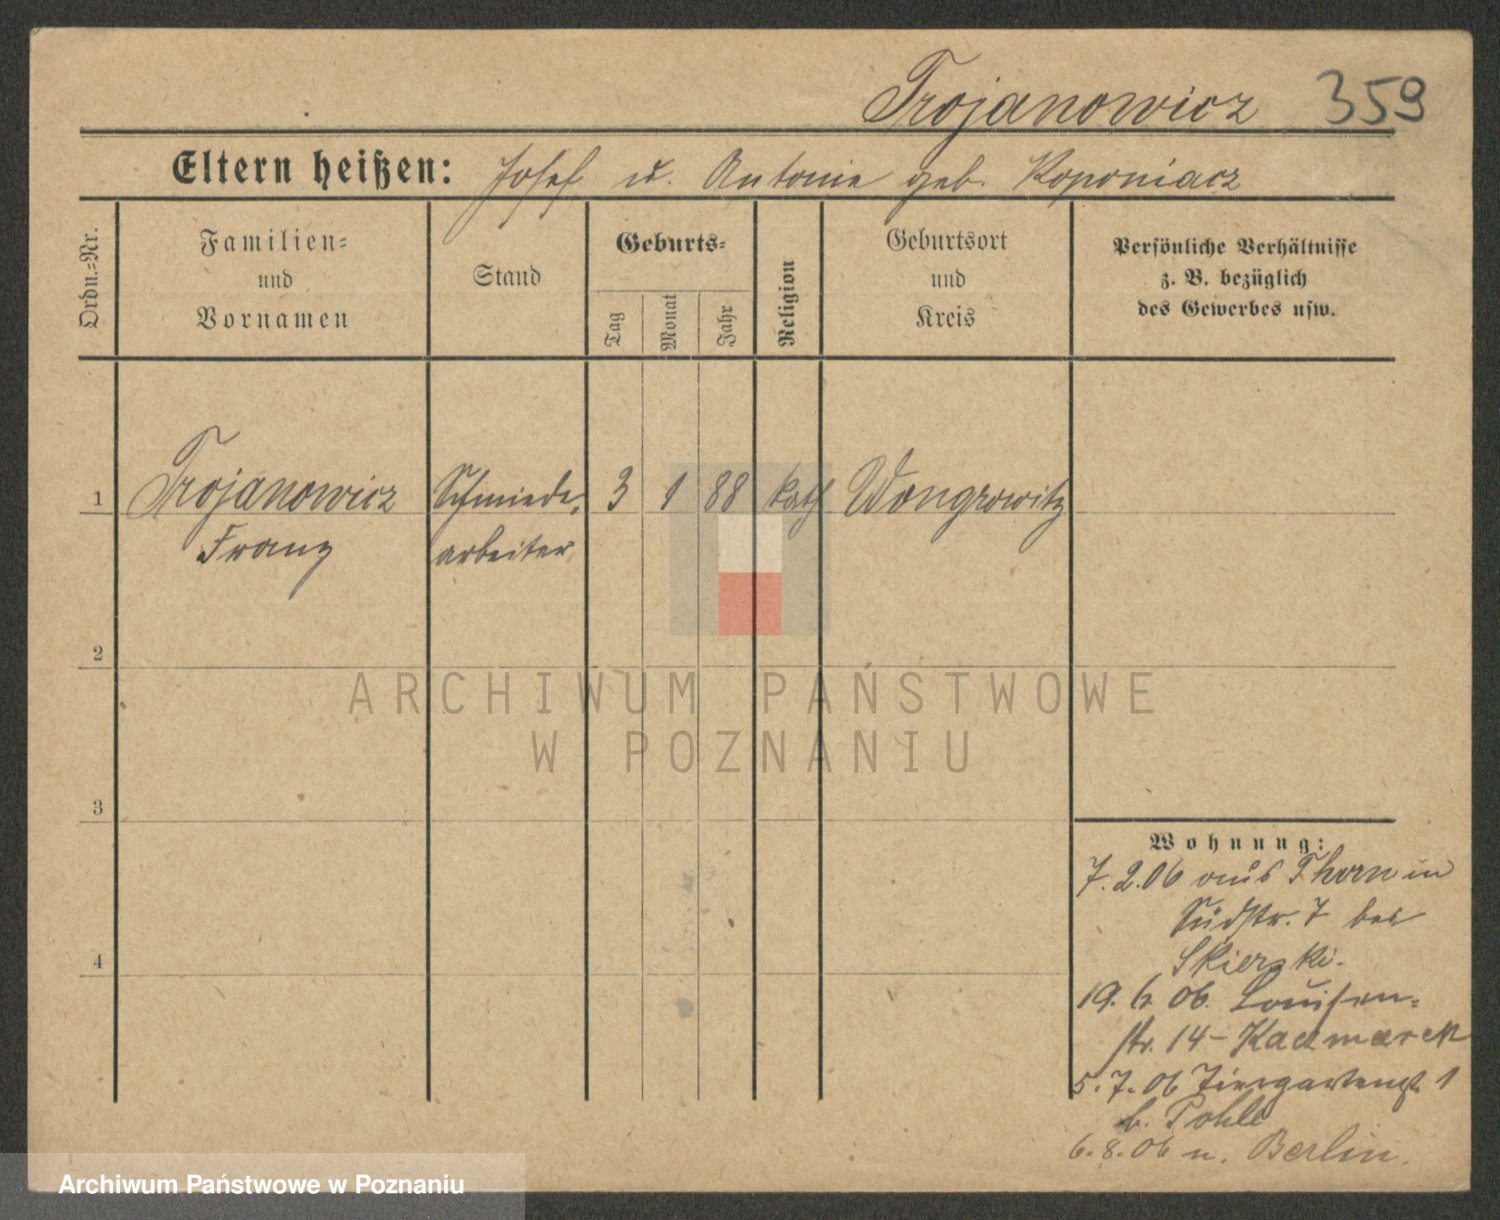 Trojanowicz 359
Eltern heißen: Josef u. Antonie geb. Koponiacz
Ordn.=Nr.
Familien=
und
Vornamen
Stand
Geburts=
Tag
Monat
Jahr
Religion
Geburtsort
und
Kreis
Persönliche Verhältnisse
z. B. bezüglich
des Gewerbes usw.
1 Trojanowicz Schmiede= 3 1 88 kath. Wongrowitz
Franz arbeiter
2
3
4
Wohnung:
7.2.06 aus Thorn in
Südstr. 7 bei
Skierski.
19.6.06. Louisen=
str. 14 - Kaczmarek
5.7.06 Tiergartenstr. 1
b. Pohle
6.8.06 n. Berlin.
ARCHIWUM PAŃSTWOWE
W POZNANIU
Archiwum Państwowe w Poznaniu